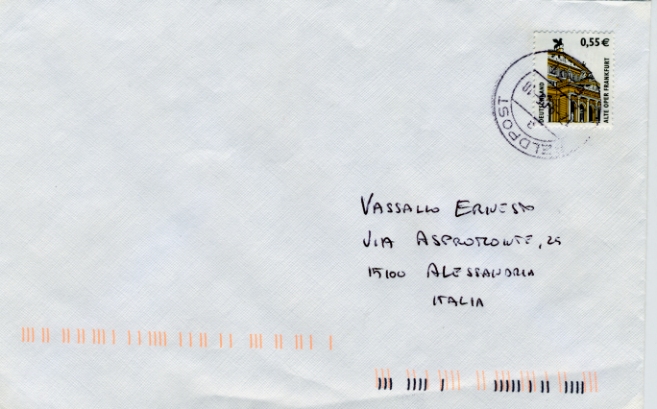 0,55 €
DEUTSCHLAND
ALTE OPER FRANKFURT
FELDPOST
VASSALLO ERNESTO
VIA ASPROMONTE, 25
15100 ALESSANDRIA
ITALIA